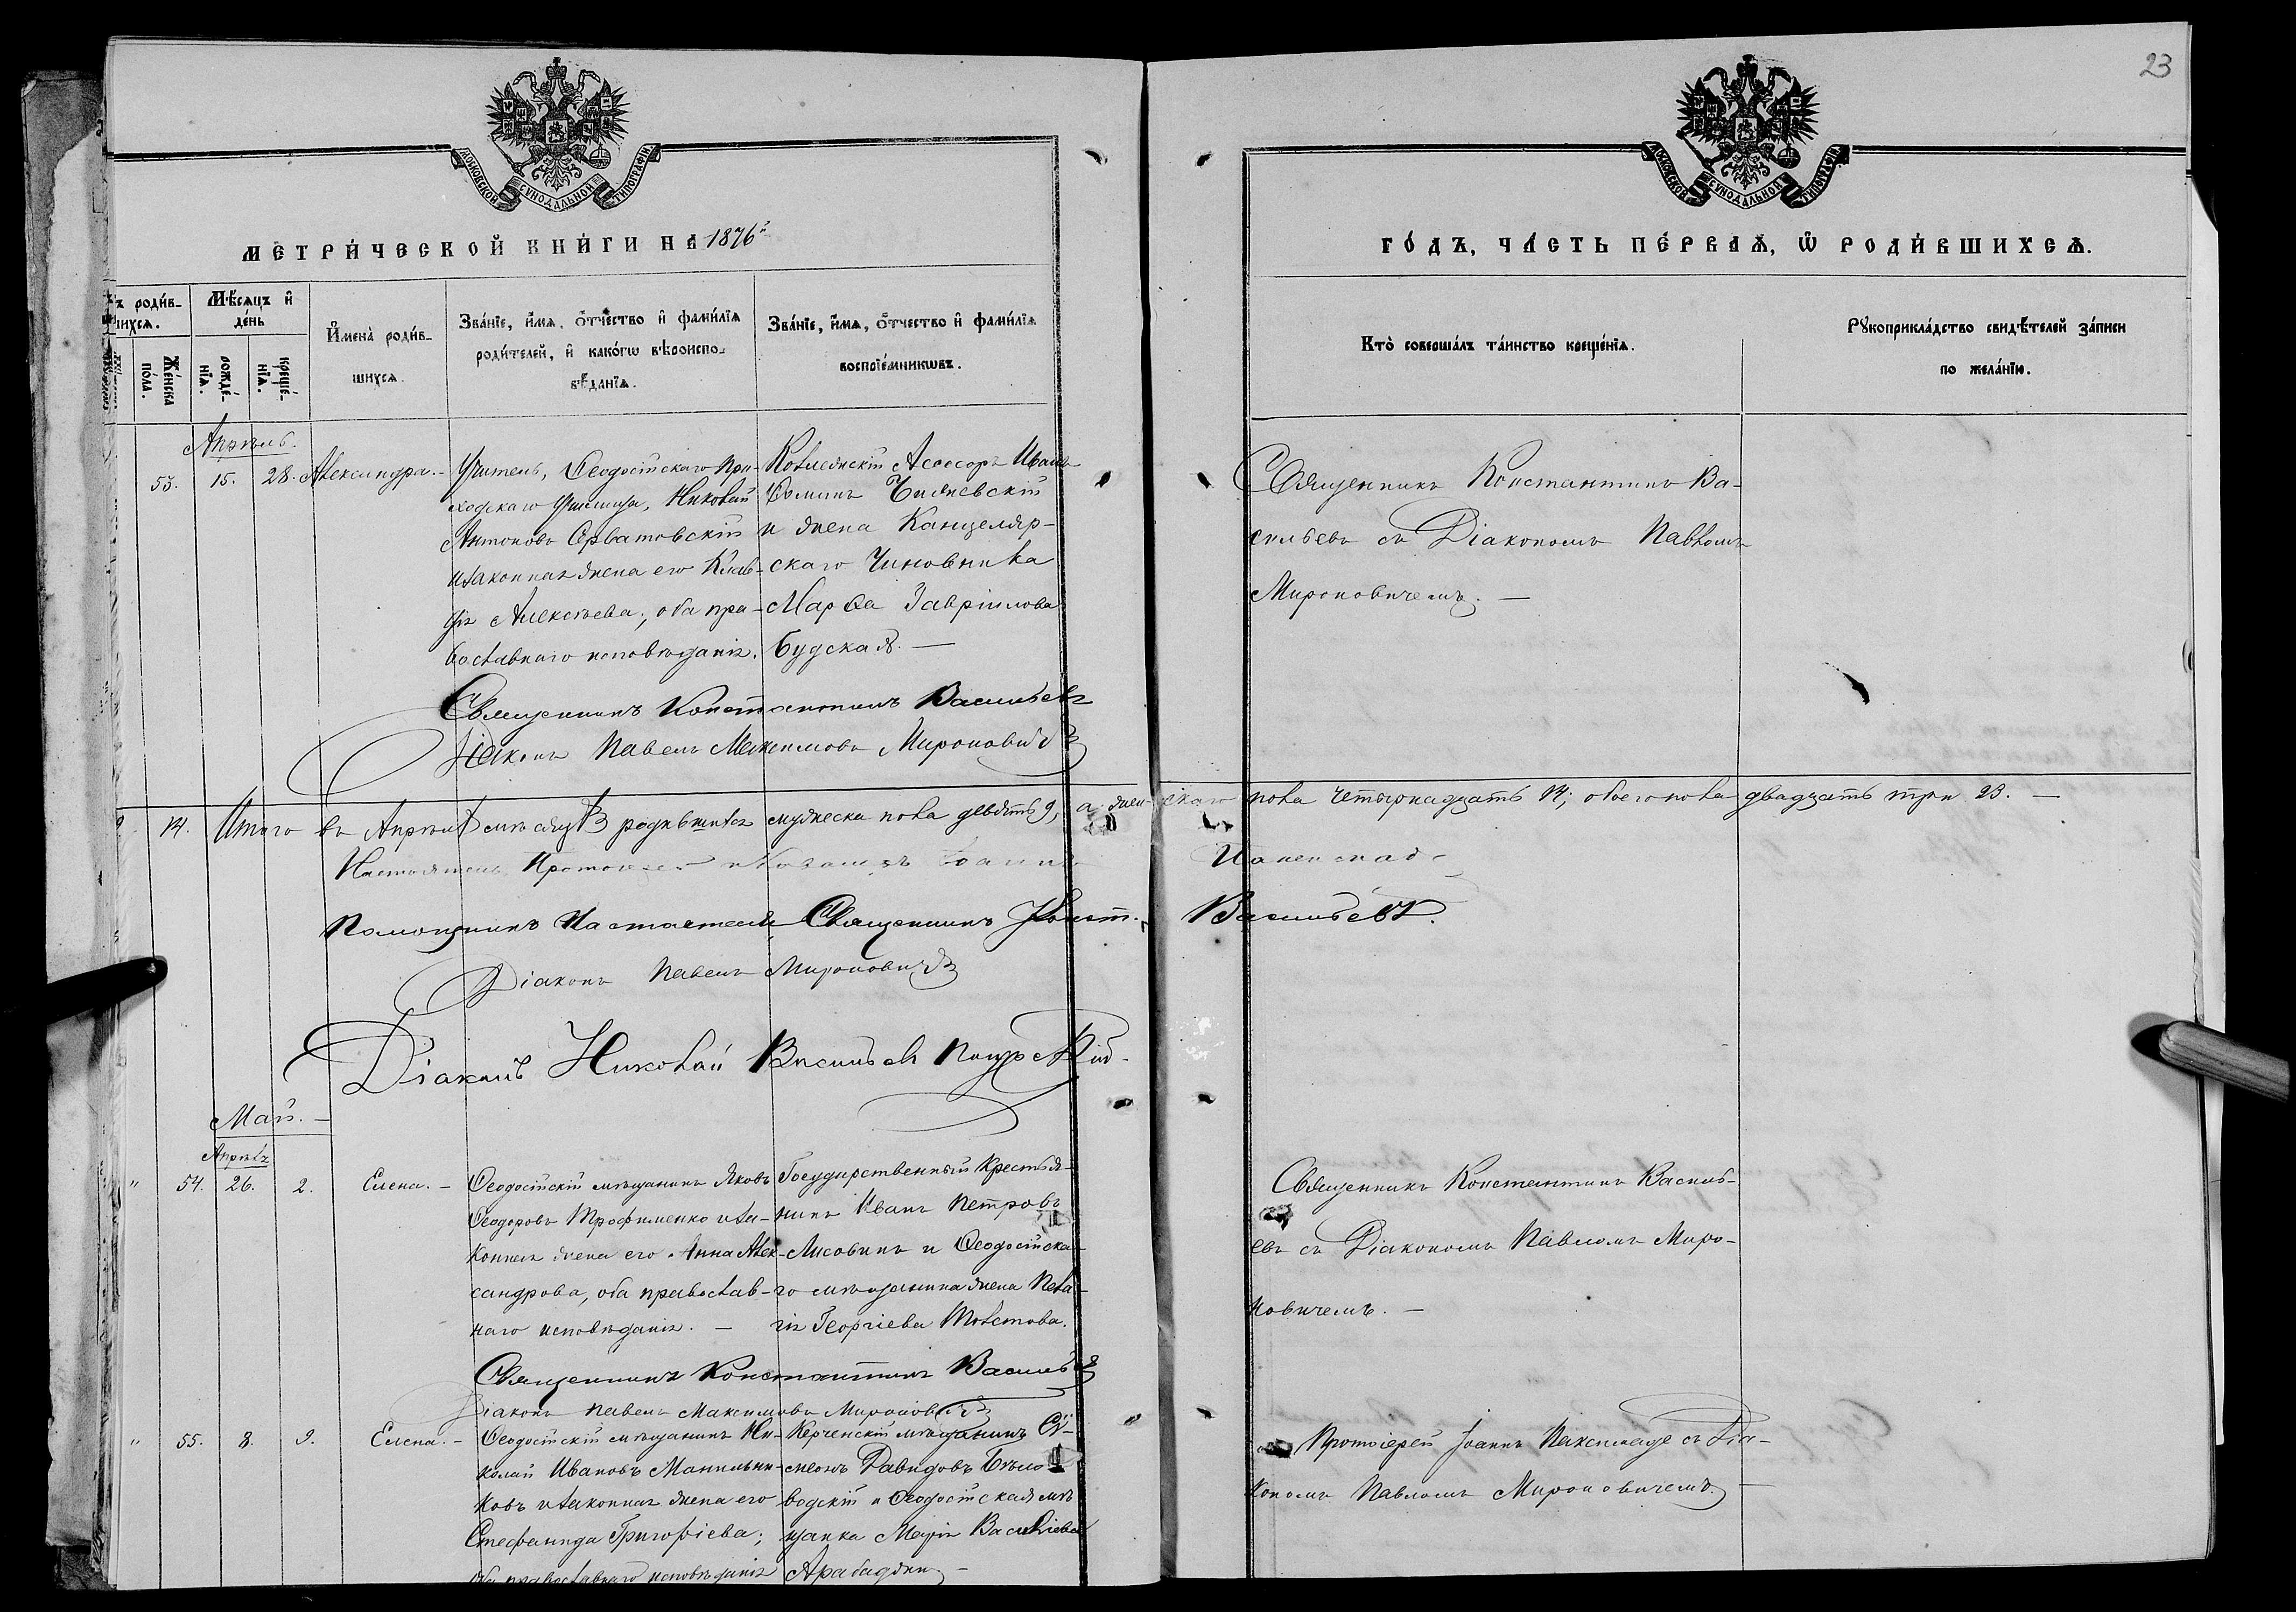 23
МОСКОВСКОЙ СѴНОДАЛЬНОЙ ТИПОГРАФІИ
МОСКОВСКОЙ СѴНОДАЛЬНОЙ ТИПОГРАФІИ
МЕТРИ́ЧЕСКОЙ КНИ́ГИ НА 1876й
ГО́ДЪ, ЧА́СТЬ ПЕ́РВАѦ, Ѿ РОДИ́ВШИХСѦ.
роди́в-
шихсѧ.
Же́нска по́ла.
Мѣ́сѧцъ и де́нь
рожде́-нїѧ.
креще́-нїѧ.
Имена̀ роди́в-
шихсѧ.
Зва́нїе, и́мѧ, ѻ́тчество и фами́лїѧ
роди́телей, и како́гѡ вѣроиспо-
вѣ́данїѧ.
Зва́нїе, и́мѧ, ѻ́тчество и фами́лїѧ
воспрїе́мникѡвъ.
Кто̀ соверша́лъ та́инство креще́нїѧ.
Рꙋкоприкла́дство свидѣ́телей за́писи
по жела́нїю.
Апрѣль.
53. 15. 28. Александра. –
Учитель, Ѳеодосійскаго При-
ходскаго Училища, Николай
Антоновъ Серватовскій
и законная жена его Клав-
дія Алексѣева, оба пра-
вославнаго исповѣданія.
Коллежскій Ассесоръ Иванъ
Чижевскій
и жена Канцеляр-
скаго Чиновника
Марѳа Гавріилова
Будская. —
Священникъ Константинъ Ва-
сильевъ съ Діакономъ Павломъ
Мироновичемъ. —
Священникъ Константинъ Васильевъ
Діаконъ Павелъ Максимовъ Мироновичъ
14. Итого въ Апрѣлѣ мѣсяцѣ родившихся мужеска пола девять 9, а женскаго пола четырнадцать 14; обоего пола двадцать три 23. —
Настоятель Протоіерей Іоаннъ
Помощникъ Настоятеля Священникъ Конст. Васильевъ.
Діаконъ Павелъ Мироновичъ
Діаконъ Николай Васильевъ
Май. —
Апрѣля
" 54. 26. 2. Елена. –
Ѳеодосійскій мѣщанинъ Яковъ
Ѳеодоровъ Трофименко и за-
конная жена его Анна Алек-
сандрова, оба православ-
наго исповѣданія. —
Государственный Крестья-
нинъ Иванъ Петровъ
Лисовинъ и Ѳеодосійска-
го мѣщанина жена Пела-
гія Георгіева Толстова.
Священникъ Константинъ Василь-
евъ съ Діакономъ Павломъ Миро-
новичемъ. —
Священникъ Константинъ Васильевъ
Діаконъ Павелъ Максимовъ Мироновичъ
" 55. 8. 9. Елена. –
Ѳеодосійскій мѣщанинъ Ни-
колай Ивановъ Манильни-
ковъ и законная жена его
Стефанида Григорьева;
оба православнаго исповѣданія
Керченскій мѣщанинъ Си-
меонъ Давидовъ Бѣло-
водскій и Ѳеодосійская мѣ-
щанка Марія Васильева
Арабаджи —
Протоіерей Іоаннъ Паксимаде съ Діа-
кономъ Павломъ Мироновичемъ. —